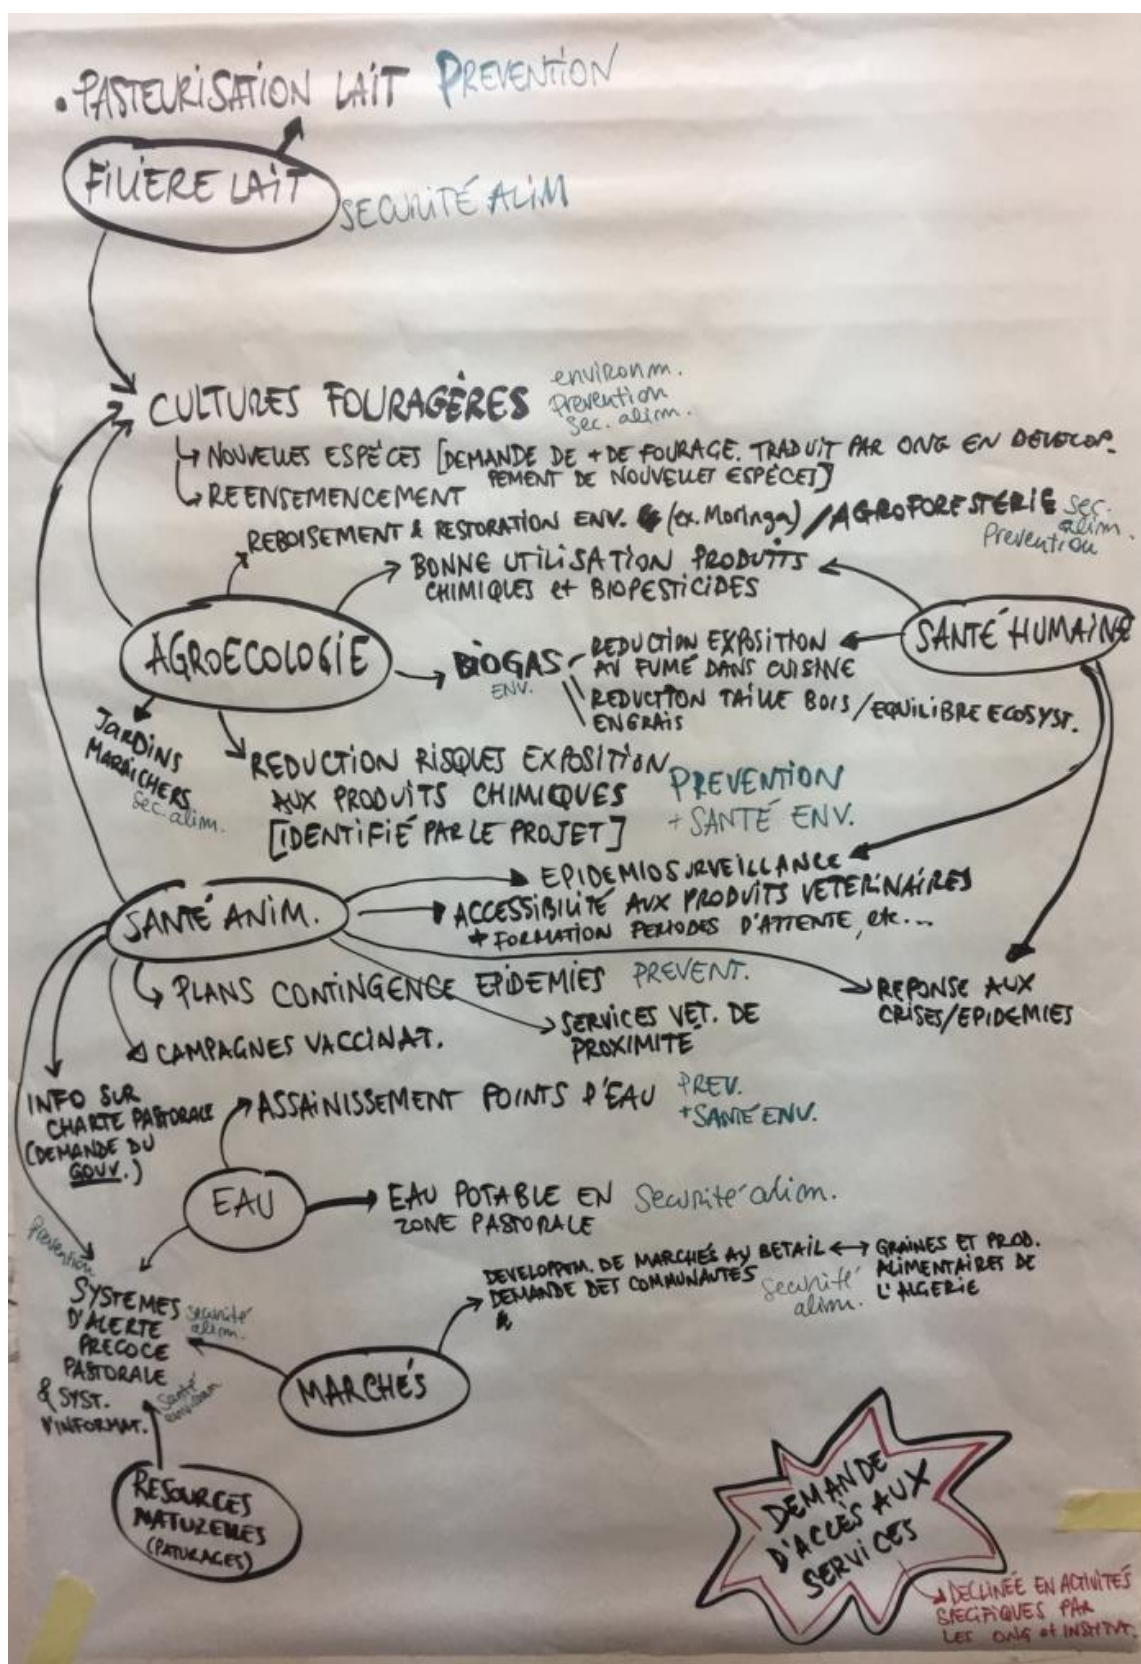 • PASTEURISATION LAIT PREVENTION
FILIERE LAIT
SECURITÉ ALIM
CULTURES FOURAGÈRES
environm.
Prevention
sec. alim.
NOUVELLES ESPÈCES [DEMANDE DE + DE FOURAGE. TRADUIT PAR ONG EN DEVELOP-
PEMENT DE NOUVELLES ESPÈCES]
REENSEMENCEMENT
REBOISEMENT & RESTORATION ENV. (ex. Moringa) / AGROFORESTERIE
sec.
alim.
Prevention
BONNE UTILISATION PRODUITS
CHIMIQUES et BIOPESTICIDES
AGROECOLOGIE
SANTÉ HUMAINE
BIOGAS
ENV.
REDUCTION EXPOSITION
AU FUMÉ DANS CUISINE
REDUCTION TAILLE BOIS / EQUILIBRE ECOSYST.
ENGRAIS
JARDINS
MARAÎCHERS
sec. alim.
REDUCTION RISQUES EXPOSITION
AUX PRODUITS CHIMIQUES
[IDENTIFIÉ PAR LE PROJET]
PREVENTION
+ SANTÉ ENV.
SANTÉ ANIM.
EPIDEMIOSURVEILLANCE
ACCESSIBILITÉ AUX PRODUITS VETERINAIRES
+ FORMATION PERIODES D'ATTENTE, etc...
PLANS CONTINGENCE EPIDEMIES PREVENT.
SERVICES VET. DE
PROXIMITÉ
REPONSE AUX
CRISES/EPIDEMIES
CAMPAGNES VACCINAT.
INFO SUR
CHARTE PASTORALE
(DEMANDE DU
GOUV.)
ASSAINISSEMENT POINTS D'EAU
PREV.
+ SANTÉ ENV.
EAU
EAU POTABLE EN
ZONE PASTORALE
Securité alim.
Prevention
SYSTEMES
D'ALERTE
PRECOCE
PASTORALE
& SYST.
D'INFORMAT.
securité
alim.
Santé
DEVELOPPEM. DE MARCHÉS AU BETAIL ↔ GRAINES ET PROD.
DEMANDE DES COMMUNAUTÉS
ALIMENTAIRES DE
L'ALGERIE
securité
alim.
MARCHÉS
RESOURCES
NATURELLES
(PATURAGES)
DEMANDE
D'ACCÈS AUX
SERVICES
DECLINÉE EN ACTIVITÉS
SPECIFIQUES PAR
LES ONG et INSTITUT.